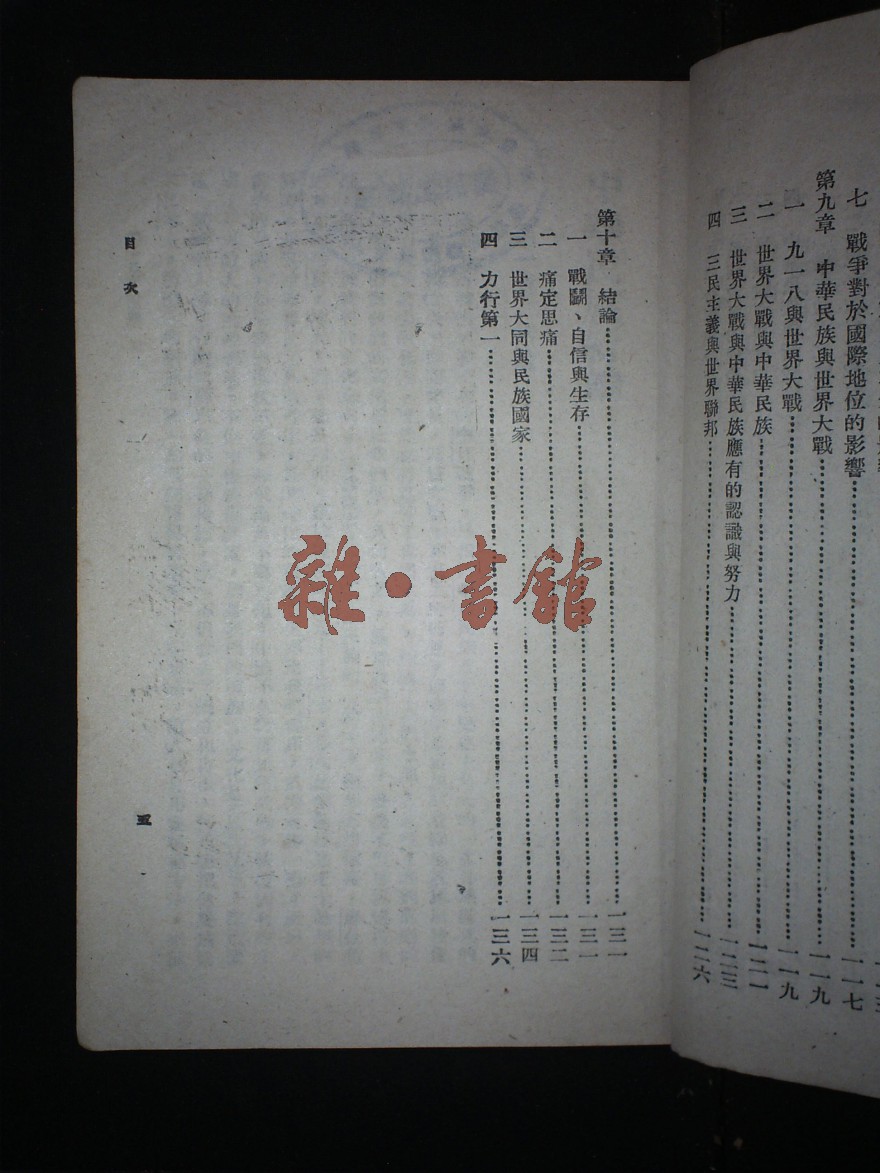 七　戰爭對於國際地位的影響……一一七
第九章　中華民族與世界大戰……一一九
一　九一八與世界大戰……一一九
二　世界大戰與中華民族……一二一
三　世界大戰與中華民族應有的認識與努力……一二三
四　三民主義與世界聯邦……一二六
第十章　結論……一三一
一　戰鬭、自信與生存……一三一
二　痛定思痛……一三二
三　世界大同與民族國家……一三四
四　力行第一……一三六
目次
五
雜·書館